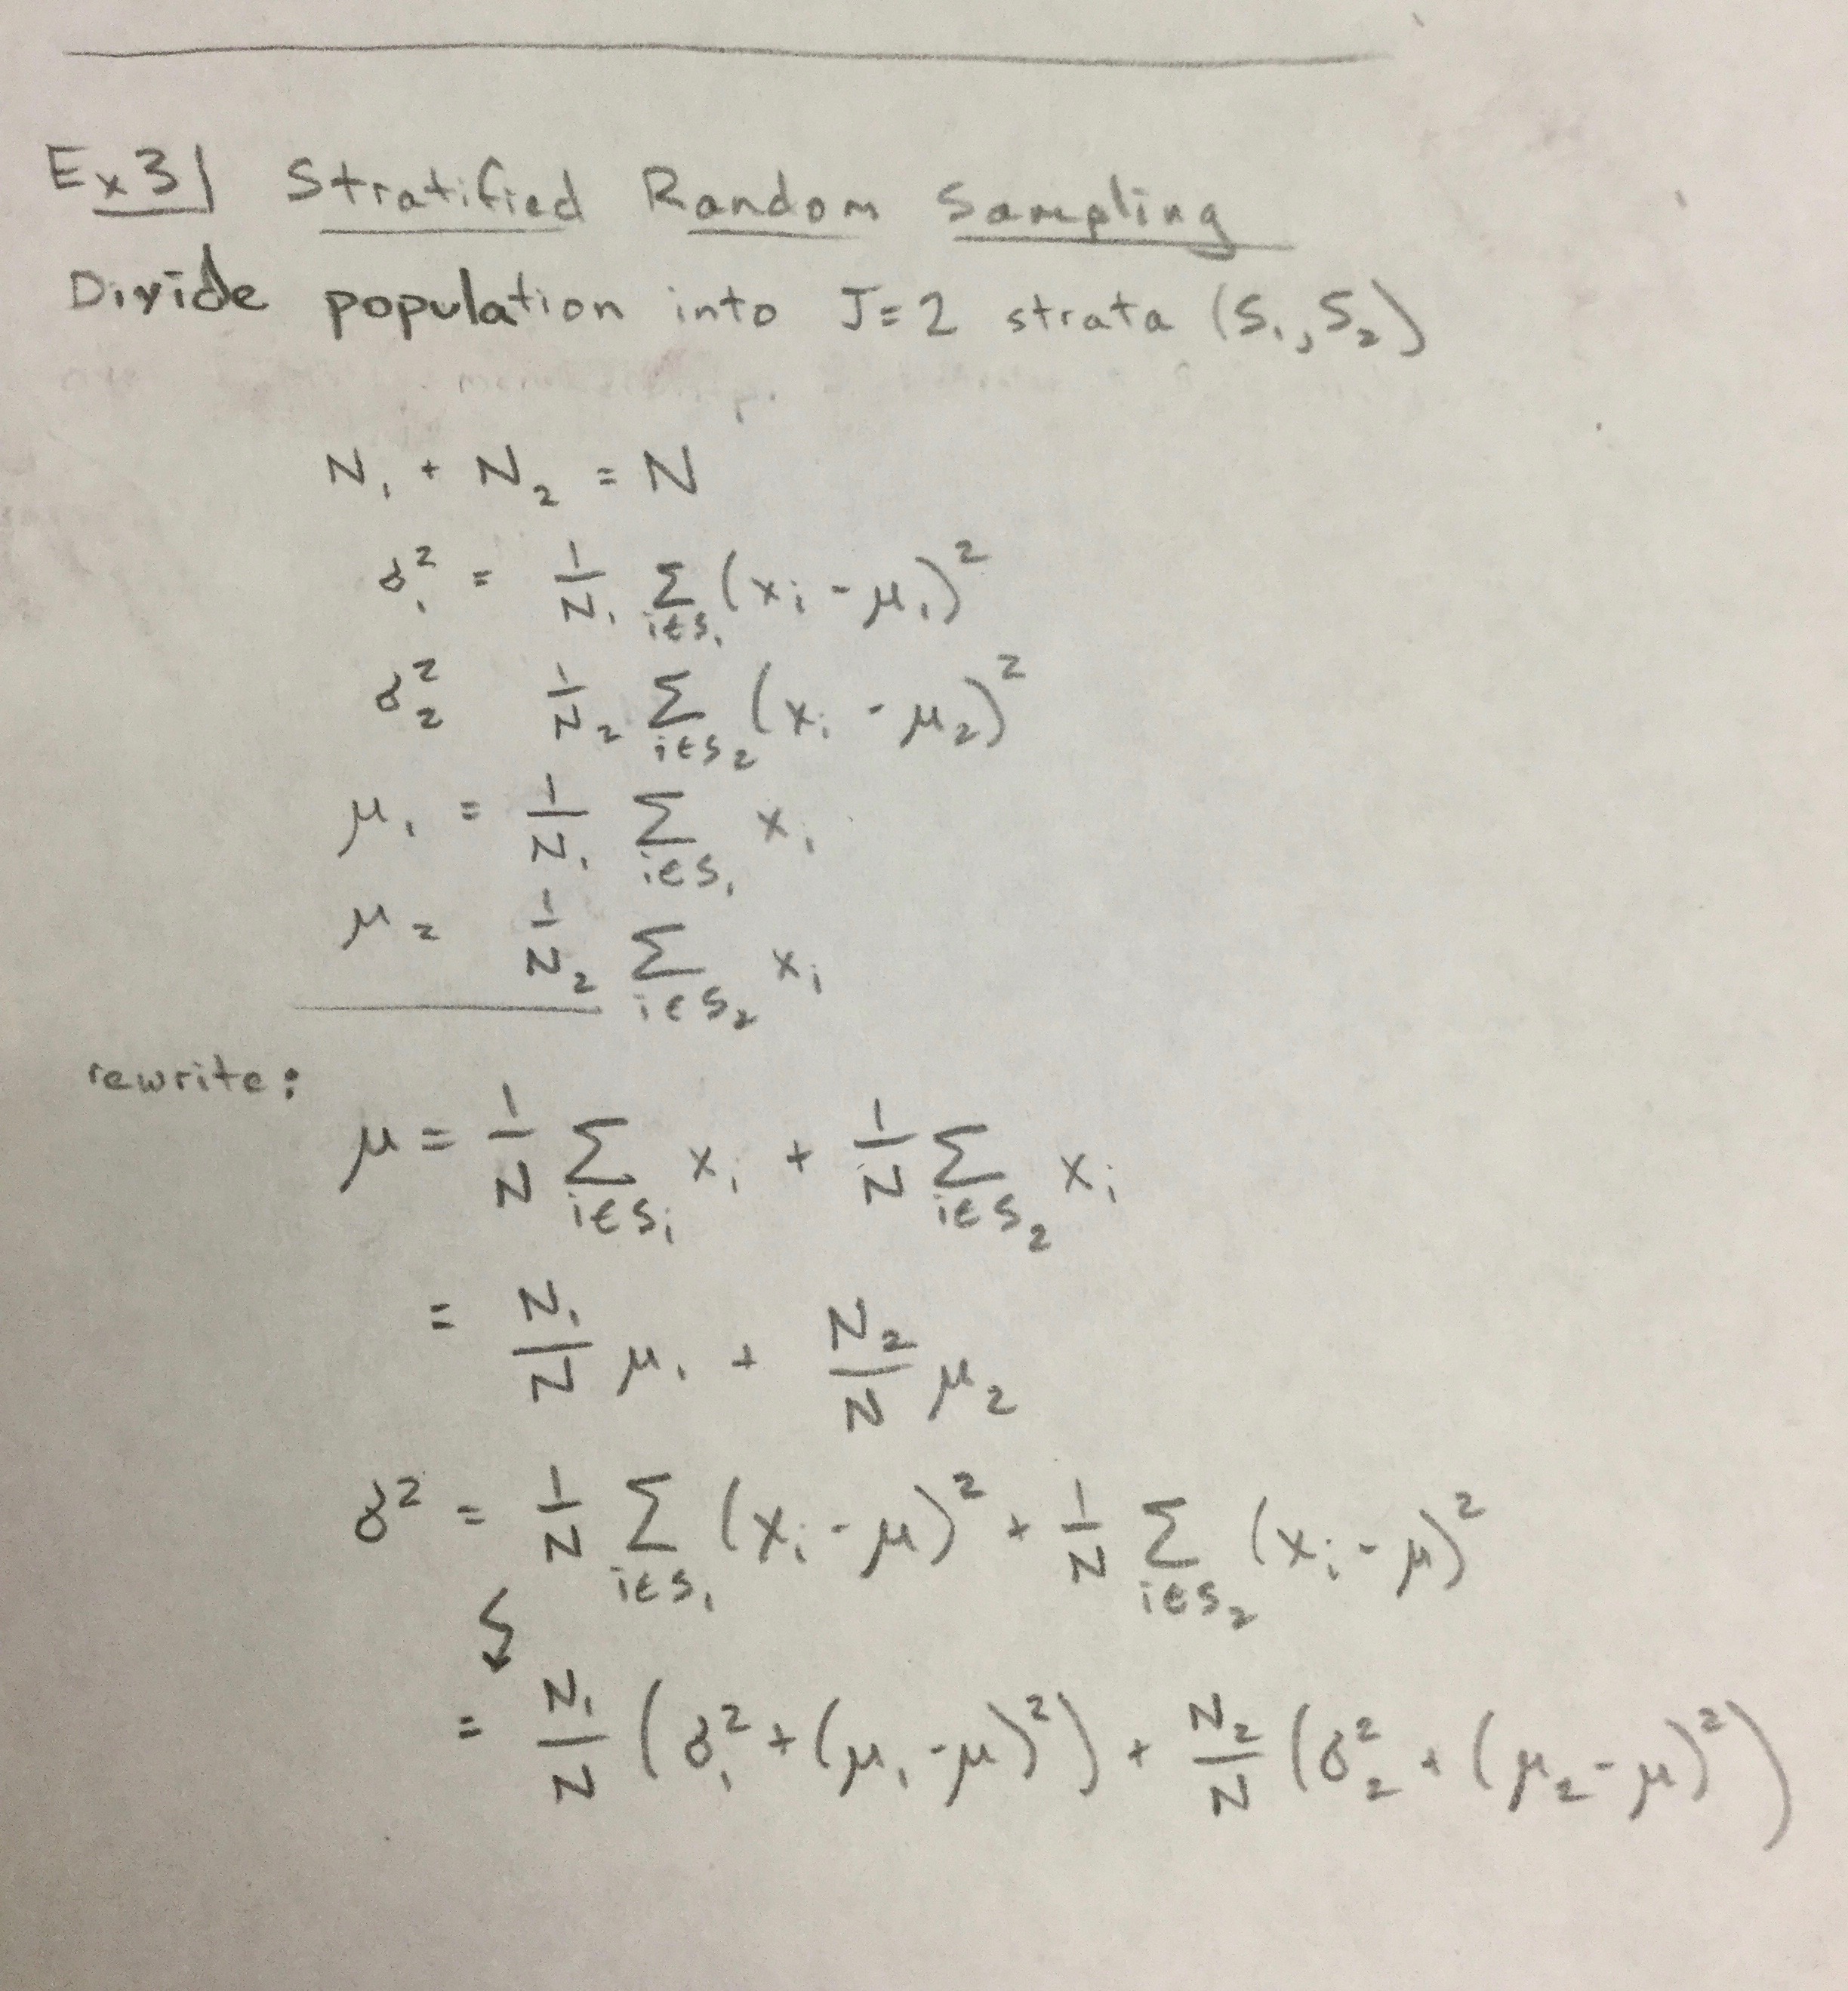 Ex 3| Stratified Random Sampling
Divide population into J=2 strata (S₁, S₂)
N₁ + N₂ = N
σ₁² = 1/N₁ Σ_{i∈S₁} (xᵢ - μ₁)²
σ₂² 1/N₂ Σ_{i∈S₂} (xᵢ - μ₂)²
μ₁ = 1/N₁ Σ_{i∈S₁} xᵢ
μ₂ 1/N₂ Σ_{i∈S₂} xᵢ
rewrite:
μ = 1/N Σ_{i∈S₁} xᵢ + 1/N Σ_{i∈S₂} xᵢ
= N₁/N μ₁ + N₂/N μ₂
σ² = 1/N Σ_{i∈S₁} (xᵢ - μ)² + 1/N Σ_{i∈S₂} (xᵢ - μ)²
= N₁/N (σ₁² + (μ₁ - μ)²) + N₂/N (σ₂² + (μ₂ - μ)²)